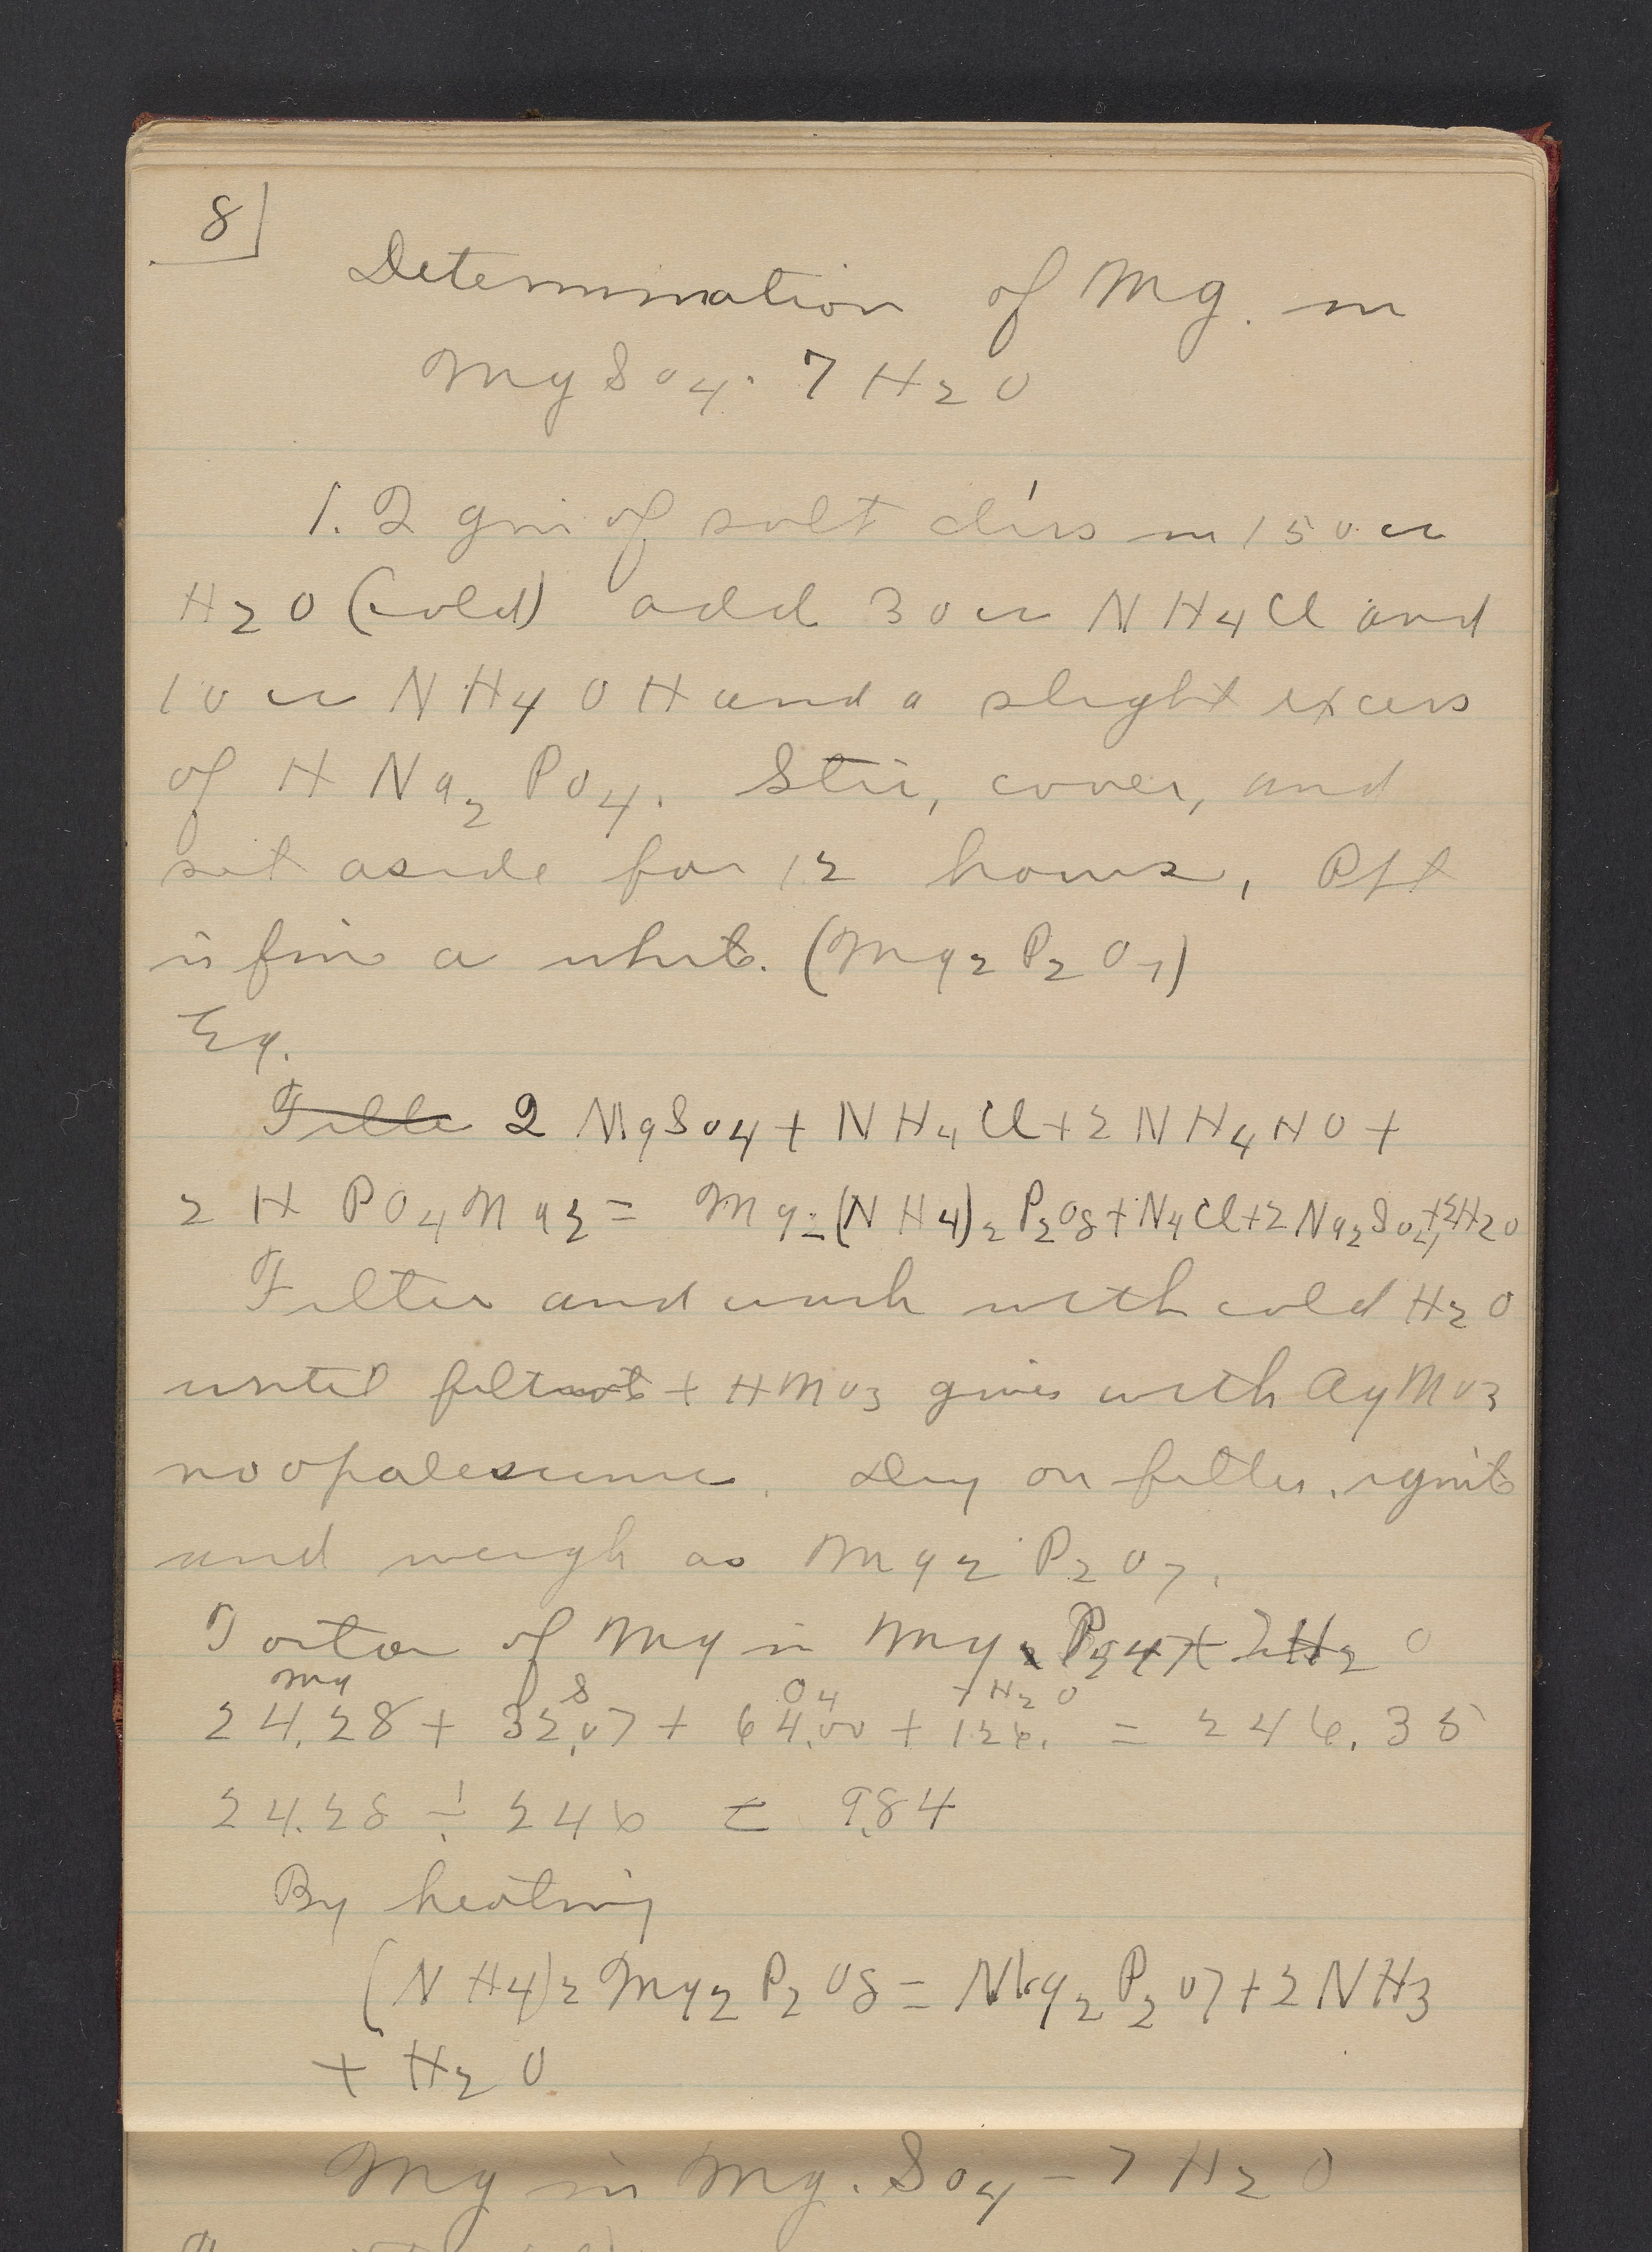 8
Determination of Mg. in
MgSO4. 7H2O
1.2 gm of salt diss in 150 cc
H2O (cold) add 30 cc NH4Cl and
10 cc NH4OH and a slight excess
of HNa2PO4. Stir, cover, and
set aside for 12 hours, Ppt
is fine a white. (Mg2P2O7)
Eq.
2 MgSO4 + NH4Cl + 2NH4HO +
2 H PO4Na2 = Mg2(NH4)2P2O8 + N4Cl + 2Na2SO4 + 2H2O
Filter and wash with cold H2O
until filtrate + HNO3 gives with AgNO3
no opalescence. Dry on filter, ignite
and weigh as Mg2P2O7.
Factor of Mg in Mg
Mg S O4 7H2O
24.28 + 32.07 + 64.00 + 126. = 246.35
24.28 ÷ 246 = 9.84
By heating
(NH4)2Mg2P2O8 = Mg2P2O7 + 2NH3
+ H2O
Mg in Mg. SO4 - 7H2O